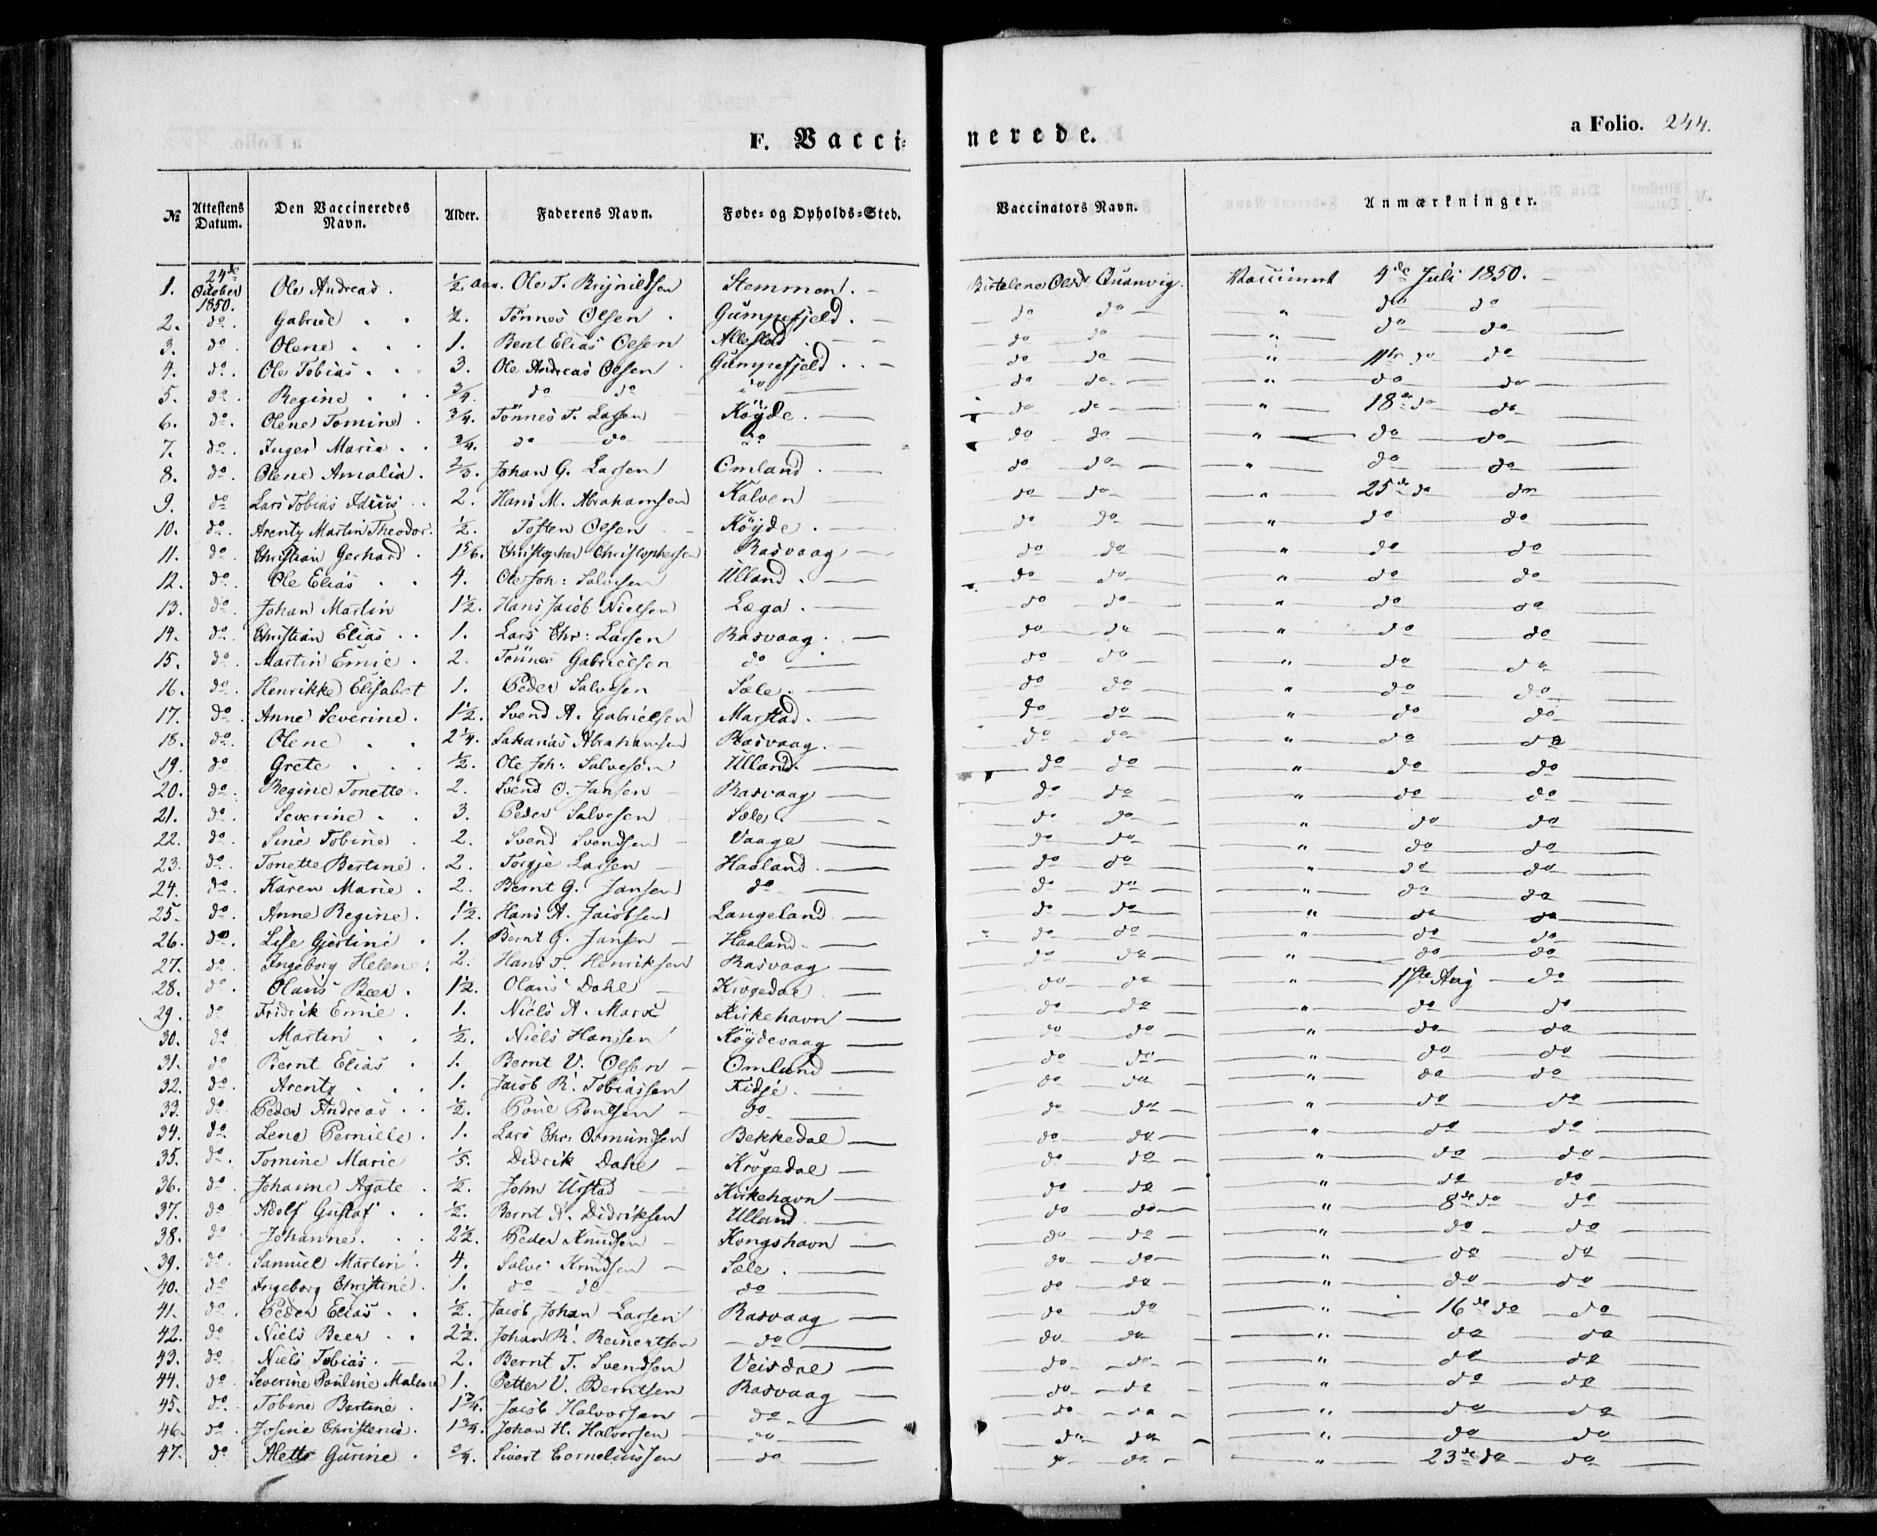 F. Vaccinerede.
a Folio. 244.
№ | Attestens Datum. | Den Vaccineredes Navn. | Alder. | Faderens Navn. | Føde- og Opholds-Sted. | Vaccinators Navn. | Anmærkninger.
1. | 24de October 1850. | Ole Andreas. | 1/2 Aar. | Ole T. Brynildsen | Stemmen. | Olsd. | Vaccineret 4de Juli 1850.
2. | do. | Gabriel | 1/2. | Tönnes Olsen | Gumpefjeld. | do do | " do do
3. | do. | Olene | 1. | Bent Elias Olsen | Allestad | do do | " do do
4. | do. | Ole Tobias | 3. | Ole Andreas Olsen | Gumpefjeld. | do do | " 11te do do
5. | do. | Regine | 3/4. | do do | do | do do | " do do
6. | do. | Olene Tomine | 3/4. | Tönnes T. Larsen | Köyde. | do do | " 18de do do
7. | do. | Inger Maria | 3/4. | do do | do | do do | " do do
8. | do. | Olene Amalia. | 2/3. | Johan G. Larsen | Omland | do do | " do do
9. | do | Lars Tobias | 2. | Hans M. Abrahamsen | Kalven | do do | " 25de do do
10. | do. | Arentz Martin Theodor. | 1/2. | Tosten Olsen | Köyde. | do do | " do do
11. | do. | Christian Gerhard | 1 5/6. | Christopher Christophersen | Rasvaag | do do | " do do
12. | do. | Ole Elias | 4. | Ole Joh: Salvesen | Ulland. | do do | " do do
13. | do. | Johan Martin | 1 1/2. | Hans Jacob Nielsen | Læga. | do do | " do do
14. | do. | Christian Elias | 1. | Lars Chr: Larsen | Rasvaag. | do do | " do do
15. | do. | Martin Emil | 2. | Tönnes Gabrielsen | do | do do | " do do
16. | do. | Henrikke Elisabet | 1. | Peder Salvesen | Sæle. | do do | " do do
17. | do. | Anne Severine. | 1 1/2. | Svend A. Gabrielsen | Marstad. | do do | " do do
18. | do. | Olene | 2 1/4. | Sakarias Abrahamsen | Rasvaag. | do do | " do do
19. | do | Grete | 1/2. | Ole Joh: Salvesen | Ulland. | do do | " do do
20. | do. | Regine Tonette. | 2. | Svend O. Jansen | Rasvaag | do do | " do do
21. | do. | Severine | 3. | Peder Salvesen | Sæle | do do | " do do
22. | do. | Sine Tobine | 2. | Svend Svendsen | Vaage | do do | " do do
23. | do. | Tonette Bertine | 2. | Torgje Larsen | Haaland. | do do | " do do
24. | do. | Karen Marie | 2. | Bernt G. Jansen | do | do do | " do do
25. | do. | Anne Regine. | 1 1/2. | Hans A. Jacobsen | Langeland | do do | " do do
26. | do. | Lise Gjertine | 1. | Bernt G. Jansen | Haaland. | do do | " do do
27. | do. | Ingeborg Helene. | 2. | Hans T. Henriksen | Rasvaag | do do | " do do
28. | do. | Olaus Beer. | 1 1/2. | Olaus Dahl | Krogedal | do do | " 1ste Aug do
29. | do | Fridrik Emil | 1. | Niels A. | Kirkehavn | do do | " do do
30. | do. | Martin | 1/2. | Niels Hansen | Köydevaag | do do | " do do
31. | do | Bernt Elias | 1. | Bernt V. Olsen | Omland | do do | " do do
32. | do. | Arentz | 1. | Jacob R. Tobiassen | Fidje. | do do | " do do
33. | do. | Peder Andreas | 1/2. | Poul Poulsen | do | do do | " do do
34. | do | Lene Pernille. | 1. | Lars Chr: Osmundsen | Bekkedal | do do | " do do
35. | do. | Tomine Marie | 1/5. | Didrik Dahl | Krogedal | do do | " do do
36. | do. | Johanne Agate | 1/2. | John Urstad | Kirkehavn | do do | " do do
37. | do | Adolf Gustaf | 1/2. | Bernt A. Didriksen | Ulland | do do | " 8de do do
38. | do | Johanne. | 2 1/2. | Peder Knudsen | Kongshavn | do do | " do do
39. | do. | Samuel Martin | 4. | Salve Knudsen | Sæle. | do do | " do do
40. | do | Ingeborg Christine. | 1. | do do | do | do do | " do do
41. | do. | Peder Elias | 1/2. | Jacob Johan Larsen | Rasvaag | do do | " 16de do do
42. | do | Niels Beer | 2 1/2. | Johan R. Reinertsen | do | do do | " do do
43. | do. | Niels Tobias. | 2. | Bernt T. Svendsen | Veisdal | do do | " do do
44. | do | Severine Pouline Malene | 1. | Petter V. Berntsen | Rasvaag | do do | " do do
45. | do. | Tobine Bertine | 1 3/4. | Jacob Halvorsen | do | do do | " do do
46. | do. | Josine Christence. | 1 3/4. | Johan H. Halvorsen | do | do do | " do do
47. | do | Alette Gurine | 3/4. | Sivert Corneliussen | do | do do | " 23de do do